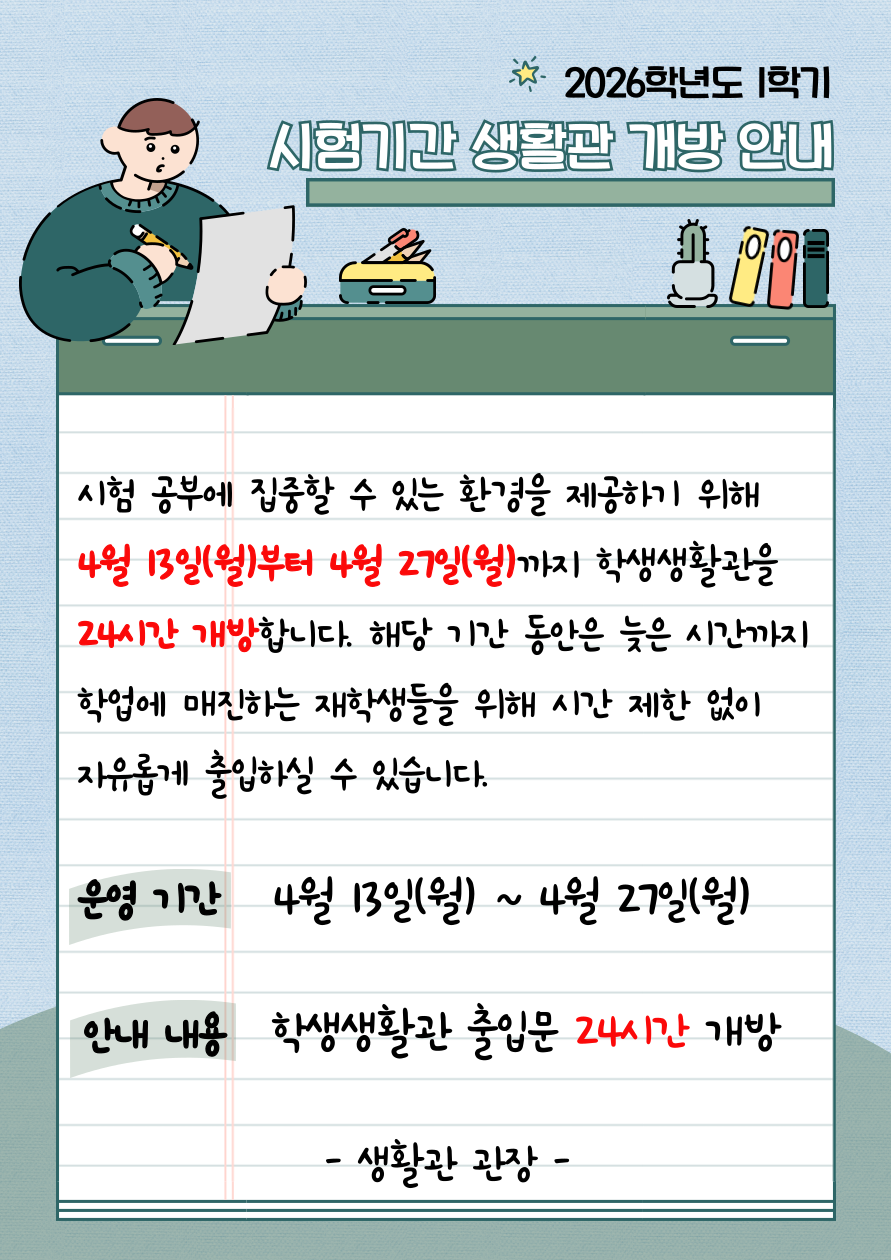 2026학년도 1학기
시험기간 생활관 개방 안내
시험 공부에 집중할 수 있는 환경을 제공하기 위해
4월 13일(월)부터 4월 27일(월)까지 학생생활관을
24시간 개방합니다. 해당 기간 동안은 늦은 시간까지
학업에 매진하는 재학생들을 위해 시간 제한 없이
자유롭게 출입하실 수 있습니다.
운영 기간 4월 13일(월) ~ 4월 27일(월)
안내 내용 학생생활관 출입문 24시간 개방
- 생활관 관장 -